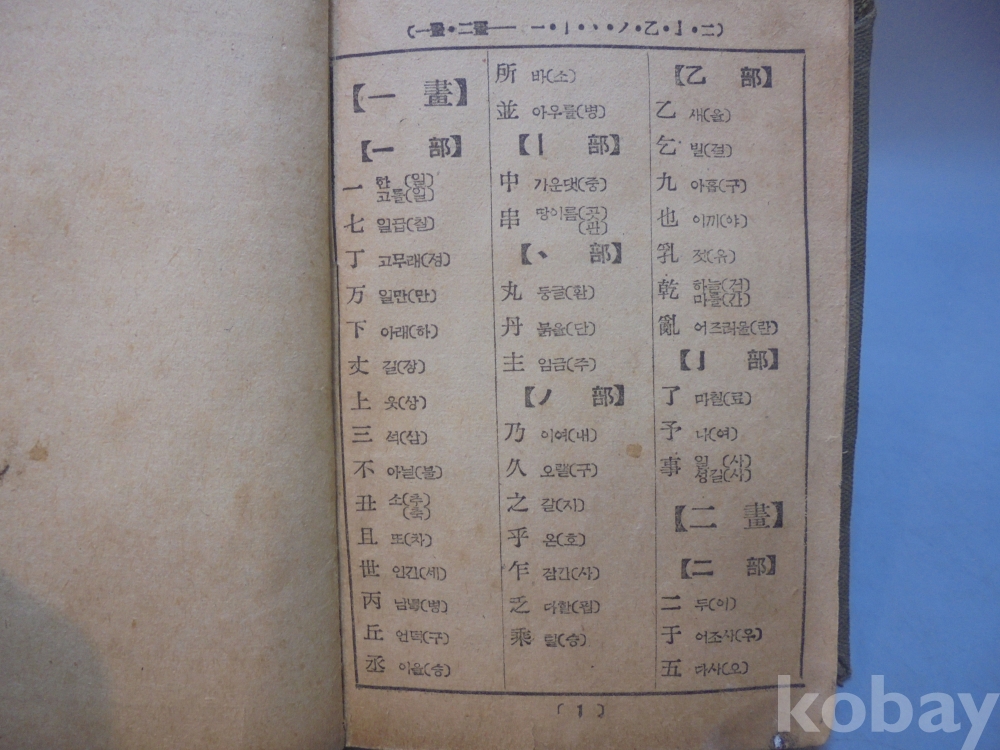 (一畫・二畫── 一・丨・丶・ノ・乙・亅・二)
【一 畫】
【一 部】
一 한 (일)
고를(일)
七 일곱(칠)
丁 고무래(정)
万 일만(만)
下 아래(하)
丈 길(장)
上 웃(상)
三 석(삼)
不 아닐(불)
丑 소(추)
(축)
且 또(차)
世 인간(세)
丙 남녘(병)
丘 언덕(구)
丞 이을(승)
所 바(소)
並 아우를(병)
【丨 部】
中 가운댓(중)
串 땅이름(곳)
(관)
【丶 部】
丸 둥글(환)
丹 붉을(단)
主 임금(주)
【ノ 部】
乃 이여(내)
久 오랠(구)
之 갈(지)
乎 온(호)
乍 잠간(사)
乏 다할(핍)
乘 탈(승)
【乙 部】
乙 새(을)
乞 빌(걸)
九 아홉(구)
也 이끼(야)
乳 젓(유)
乾 하늘(건)
마를(간)
亂 어즈러울(란)
【亅 部】
了 마칠(료)
予 나(여)
事 일 (사)
섬길(사)
【二 畫】
【二 部】
二 두(이)
于 어조사(우)
五 다사(오)
( 1 )
kobay